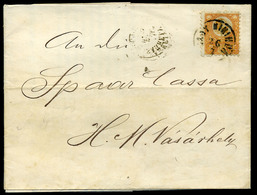 An die
Spaar Cassa
H. M. Vásárhely